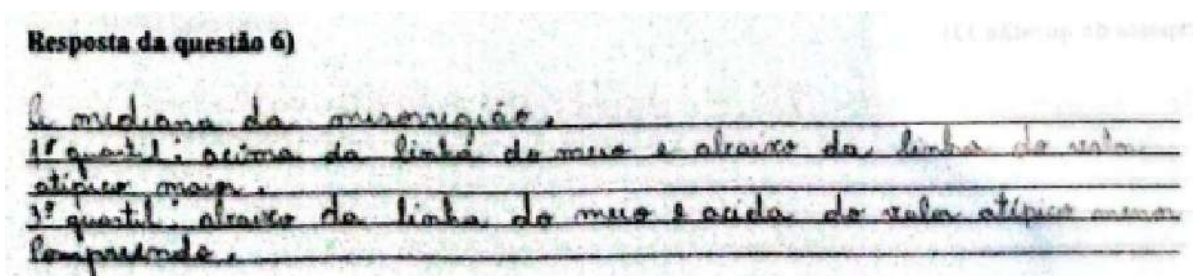 Resposta da questão 6)
A mediana da mesorregião.
1º quartil: acima da linha do meio e abaixo da linha do valor
atípico maior.
3º quartil: abaixo da linha do meio e acida do valor atípico menor
Compreendo.